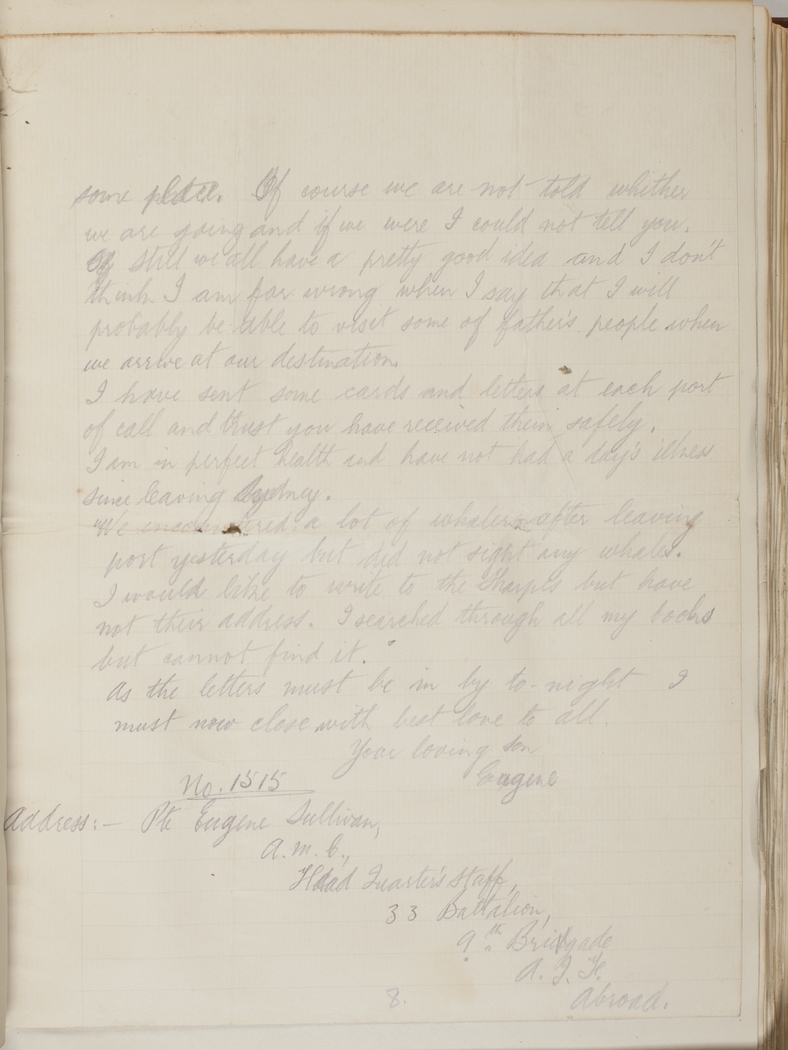 some place. Of course we are not told whether
we are going and if we were I could not tell you.
Still we all have a pretty good idea and I don't
think I am far wrong when I say that I will
probably be able to visit some of father's people when
we arrive at our destination.
I have sent some cards and letters at each port
of call and trust you have received them safely.
I am in perfect health and have not had a day's illness
since leaving Sydney.
"We encountered a lot of whalers after leaving
port yesterday but did not sight any whales.
I would like to write to the Sharpes but have
not their address. I searched through all my books
but cannot find it."
As the letters must be in by to-night I
must now close with best love to all.
Your loving son
Eugene
No. 1515
Address:- Pte Eugene Sullivan,
A.M.C.,
Head Quarter's Staff,
33 Battalion,
9th Bridgade
A.I.F.
Abroad.
8.